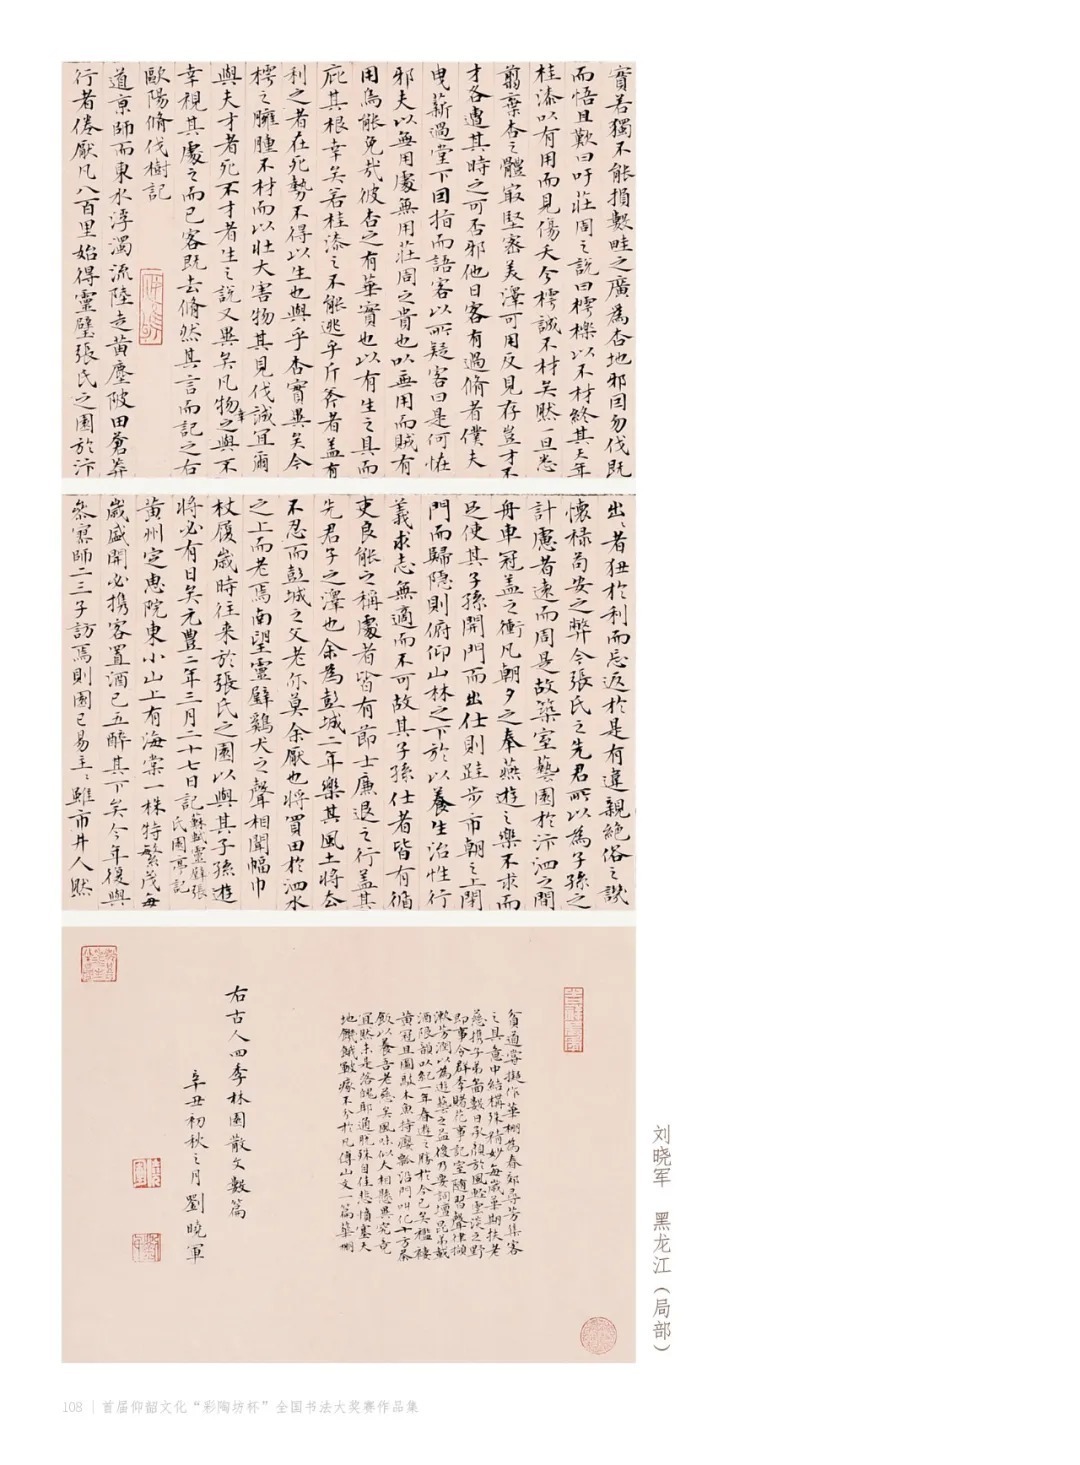 實若獨不能損數畦之廣為杏地邪因勿伐既
而悟且歎曰吁莊周之說曰樗櫟以不材終其天年
桂漆以有用而見傷夭今樗誠不材矣然一旦悉
翦棄杏之體最堅密美澤可用反見存豈才不
才各遭其時之可否邪他日客有過脩者僕夫
曳薪過堂下因指而語客以所疑客曰是何怪
邪夫以無用處無用莊周之貴也以無用而賊有
用烏能免哉彼杏之有華實也以有生之具而
庇其根幸矣若桂漆之不能逃乎斤斧者蓋有
利之者在死勢不得以生也與乎杏實異矣今
樗之臃腫不材而以壯大害物其見伐誠宜爾
與夫才者死不才者生之說又異矣凡物之幸與不
幸視其處之而已客既去脩然其言而記之右
歐陽脩伐樹記
道京師而東水浮濁流陸走黃塵陂田蒼莽
行者倦厭凡八百里始得靈壁張氏之園於汴
出〻者狃於利而忘返於是有違親絕俗之譏
懷祿苟安之弊今張氏之先君所以為子孫之
計慮者遠而周是故築室藝園於汴泗之間
舟車冠蓋之衝凡朝夕之奉燕遊之樂不求而
足使其子孫開門而出仕則跬步市朝之上閉
門而歸隱則俯仰山林之下於以養生治性行
義求志無適而不可故其子孫仕者皆有循
吏良能之稱處者皆有節士廉退之行蓋其
先君子之澤也余為彭城二年樂其風土將去
不忍而彭城之父老亦莫余厭也將買田於泗水
之上而老焉南望靈壁雞犬之聲相聞幅巾
杖屨歲時往來於張氏之園以與其子孫遊
將必有日矣元豐二年三月二十七日記蘇軾靈壁張
氏園亭記
黃州定惠院東小山上有海棠一株特繁茂每
歲盛開必携客置酒已五醉其下矣今年復與
參寥師二三子訪焉則園已易主〻雖市井人然
貧道嘗擬作華棚為春郊尋芳集客
之具意中結構殊精妙每歲華期扶老
慈携子弟箇數日承顏於風輕雲淡之野
即事令群季賭花事記室隨習聲律擷
漱芳潤以為遊藝之益後乃要詞壇昆弟戴
酒限韻以紀一年春遊之勝於今已矣襤褸
黃冠且圖敲木魚持癭瓢沿門叫化十方齋
飯以養吾老慈矣風味似大相懸異究竟
宜然未是落魄耶通脫殊自佳悲憤塞天
地饑餓皸瘃不分於凡傅山文一篇華棚
右古人四季林園散文數篇
辛丑初秋之月劉曉軍
刘晓军 黑龙江（局部）
108 | 首届仰韶文化“彩陶坊杯”全国书法大奖赛作品集